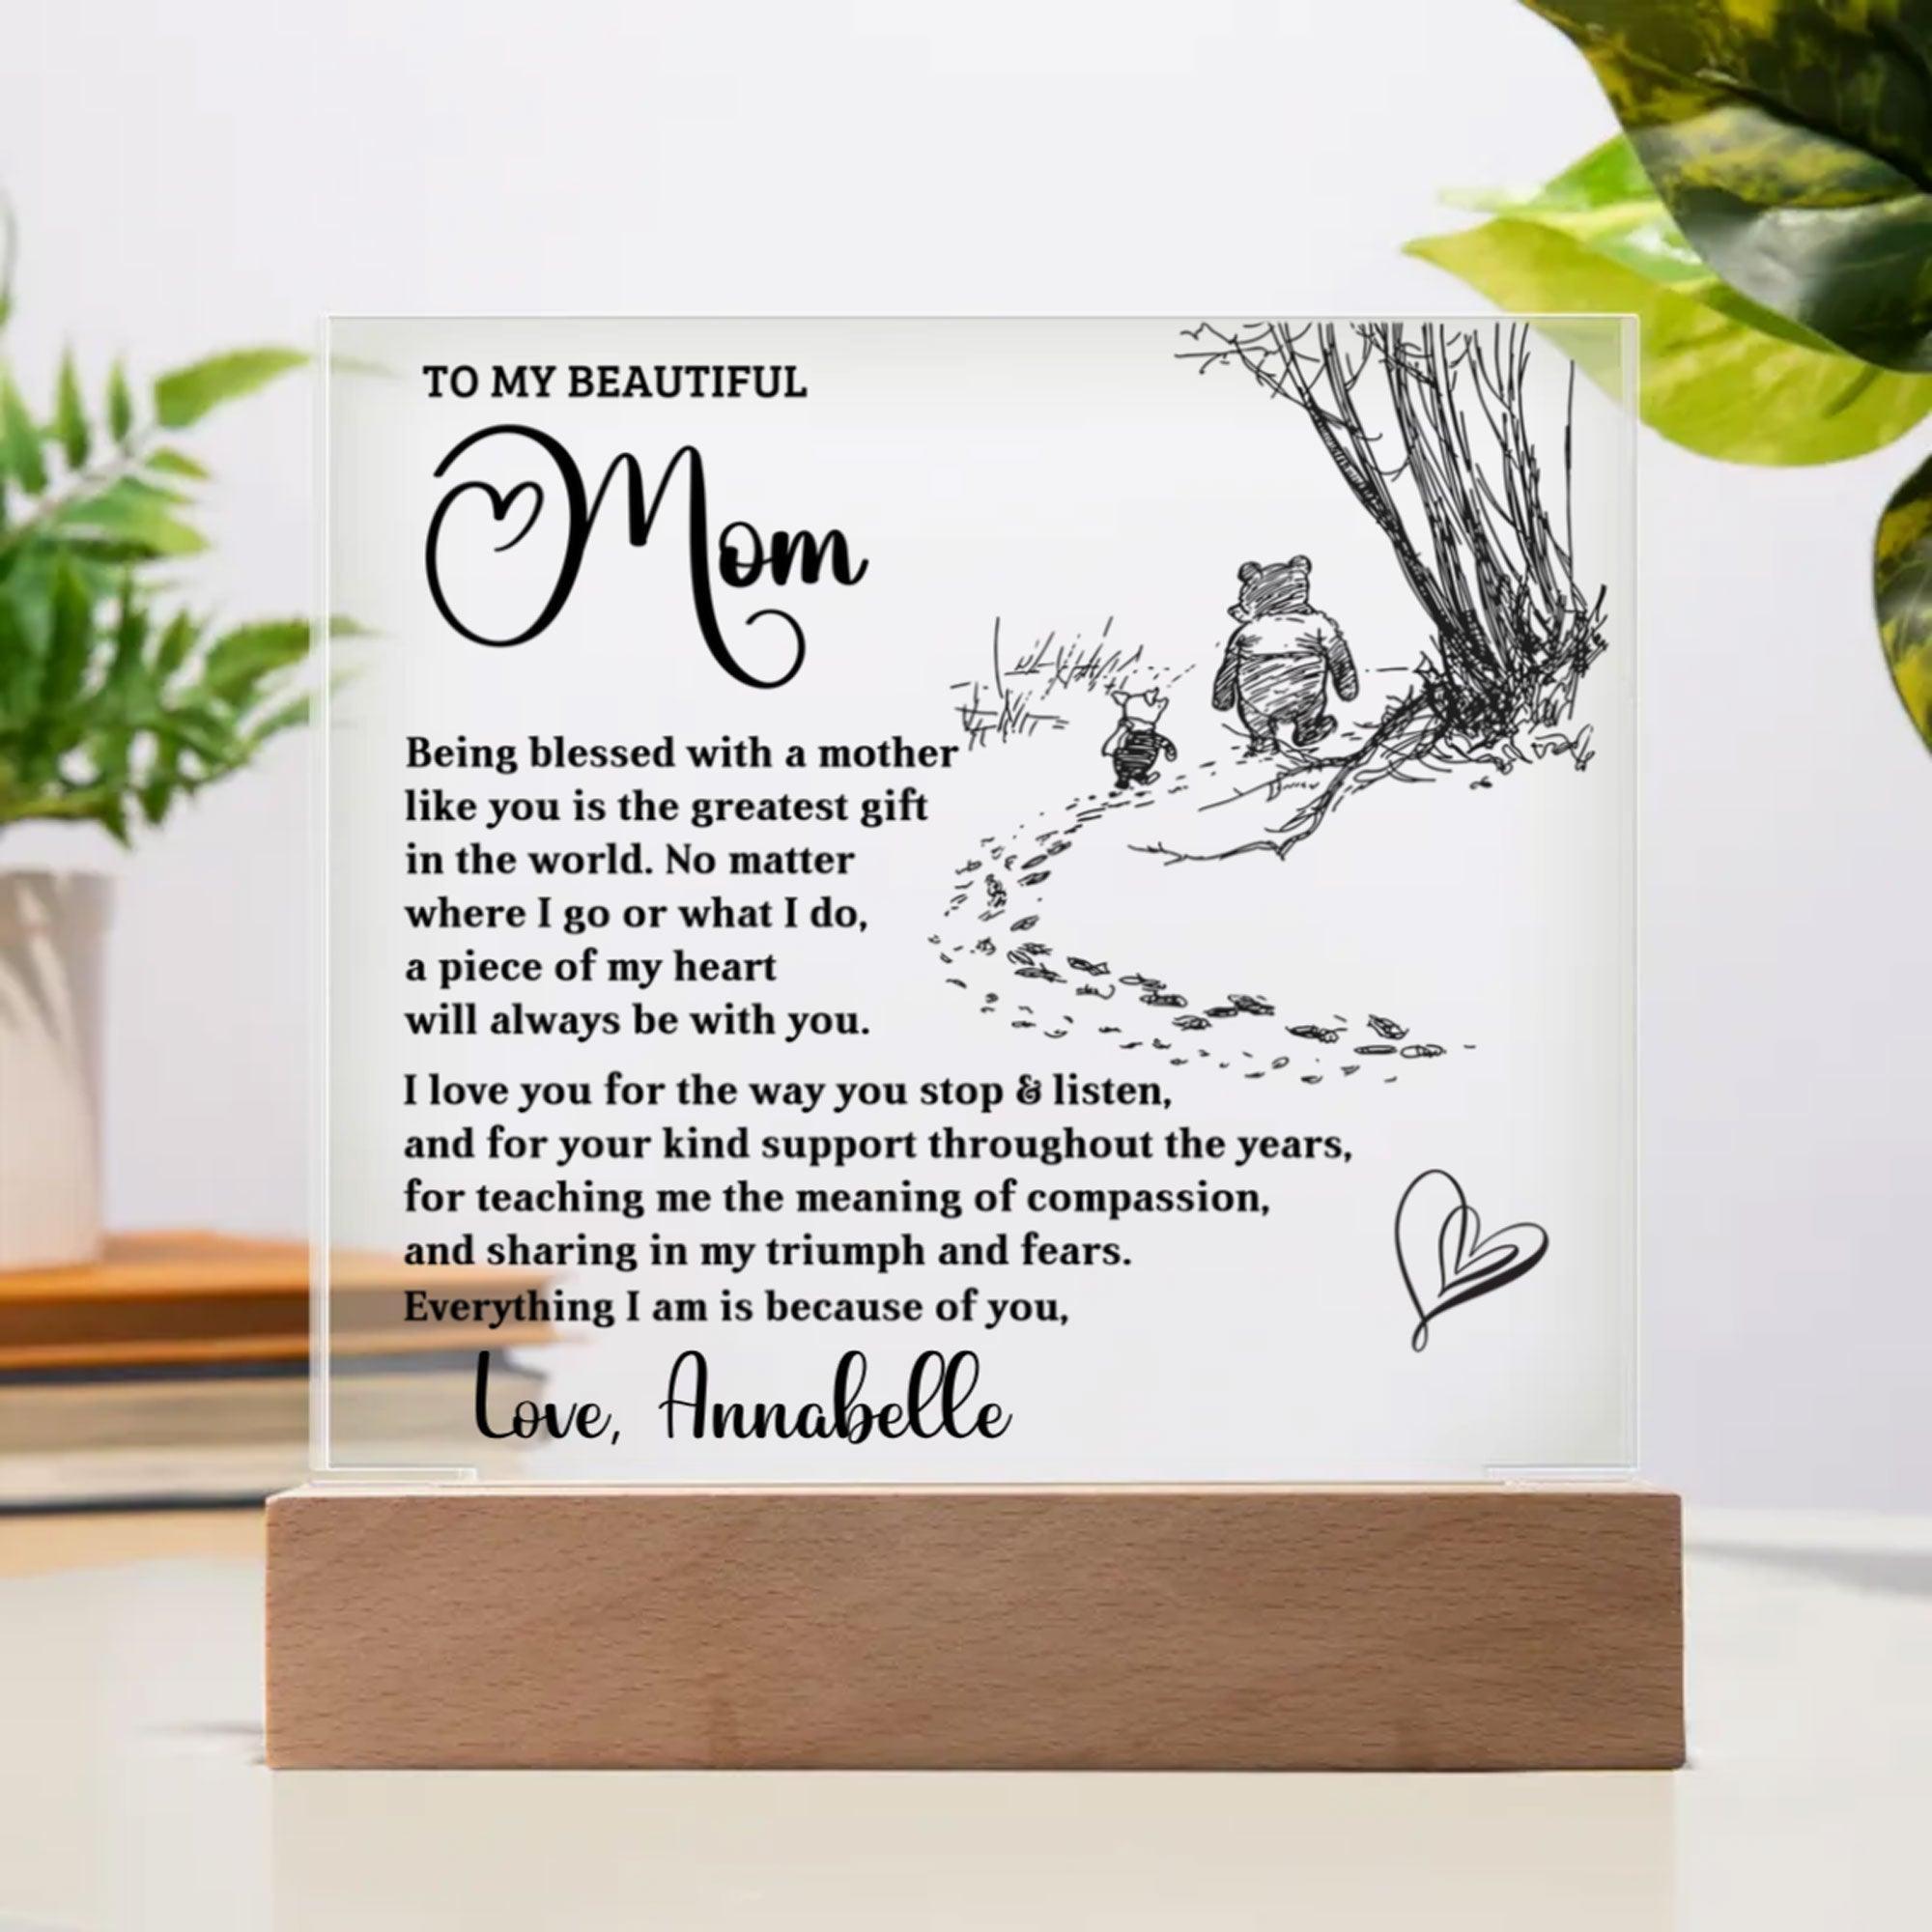 TO MY BEAUTIFUL
Mom
Being blessed with a mother
like you is the greatest gift
in the world. No matter
where I go or what I do,
a piece of my heart
will always be with you.
I love you for the way you stop & listen,
and for your kind support throughout the years,
for teaching me the meaning of compassion,
and sharing in my triumph and fears.
Everything I am is because of you,
Love, Annabelle